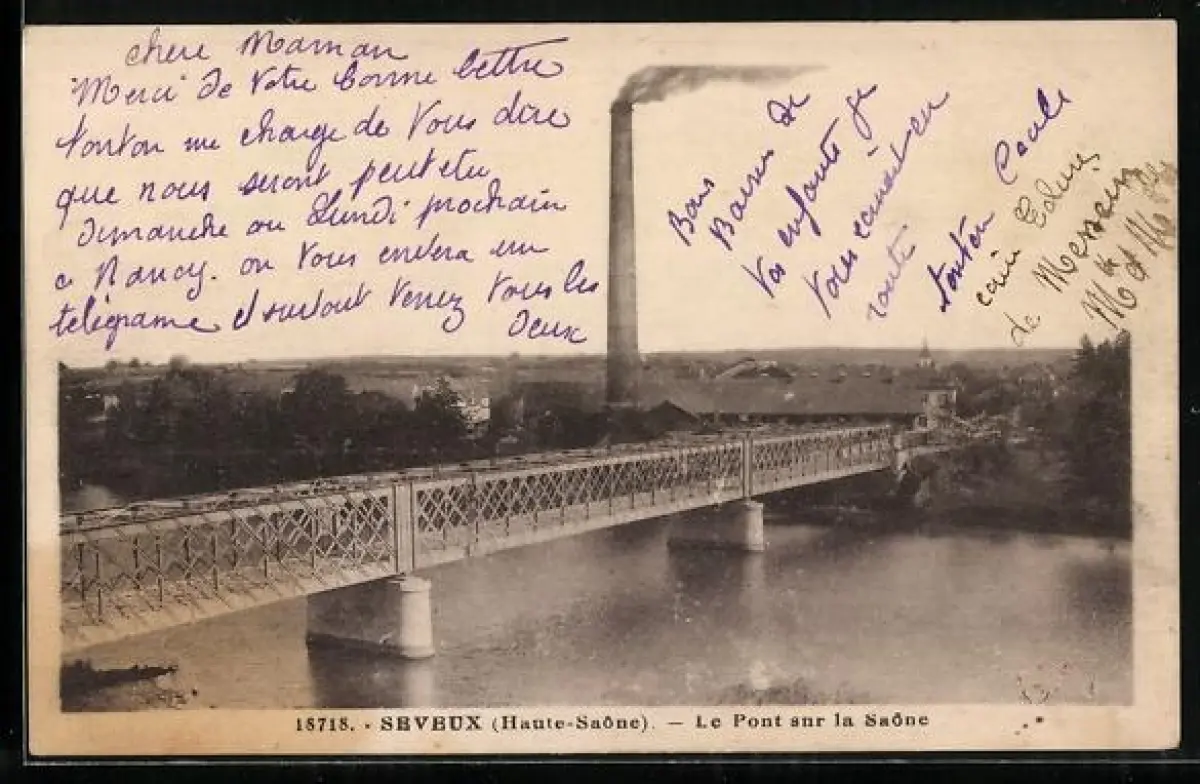 chere Maman
Merci de Votre bonne lettre
tonton me charge de Vous dire
que nous seront peutetre
dimanche ou Lundi prochain
a Nancy. on Vous envera un
telégrame et surtout Venez Vous les
deux
Bons
Baiser de
Vos enfants
Vous
tonton Cécile
de
M et M
18718. - SEVEUX (Haute-Saône). — Le Pont sur la Saône